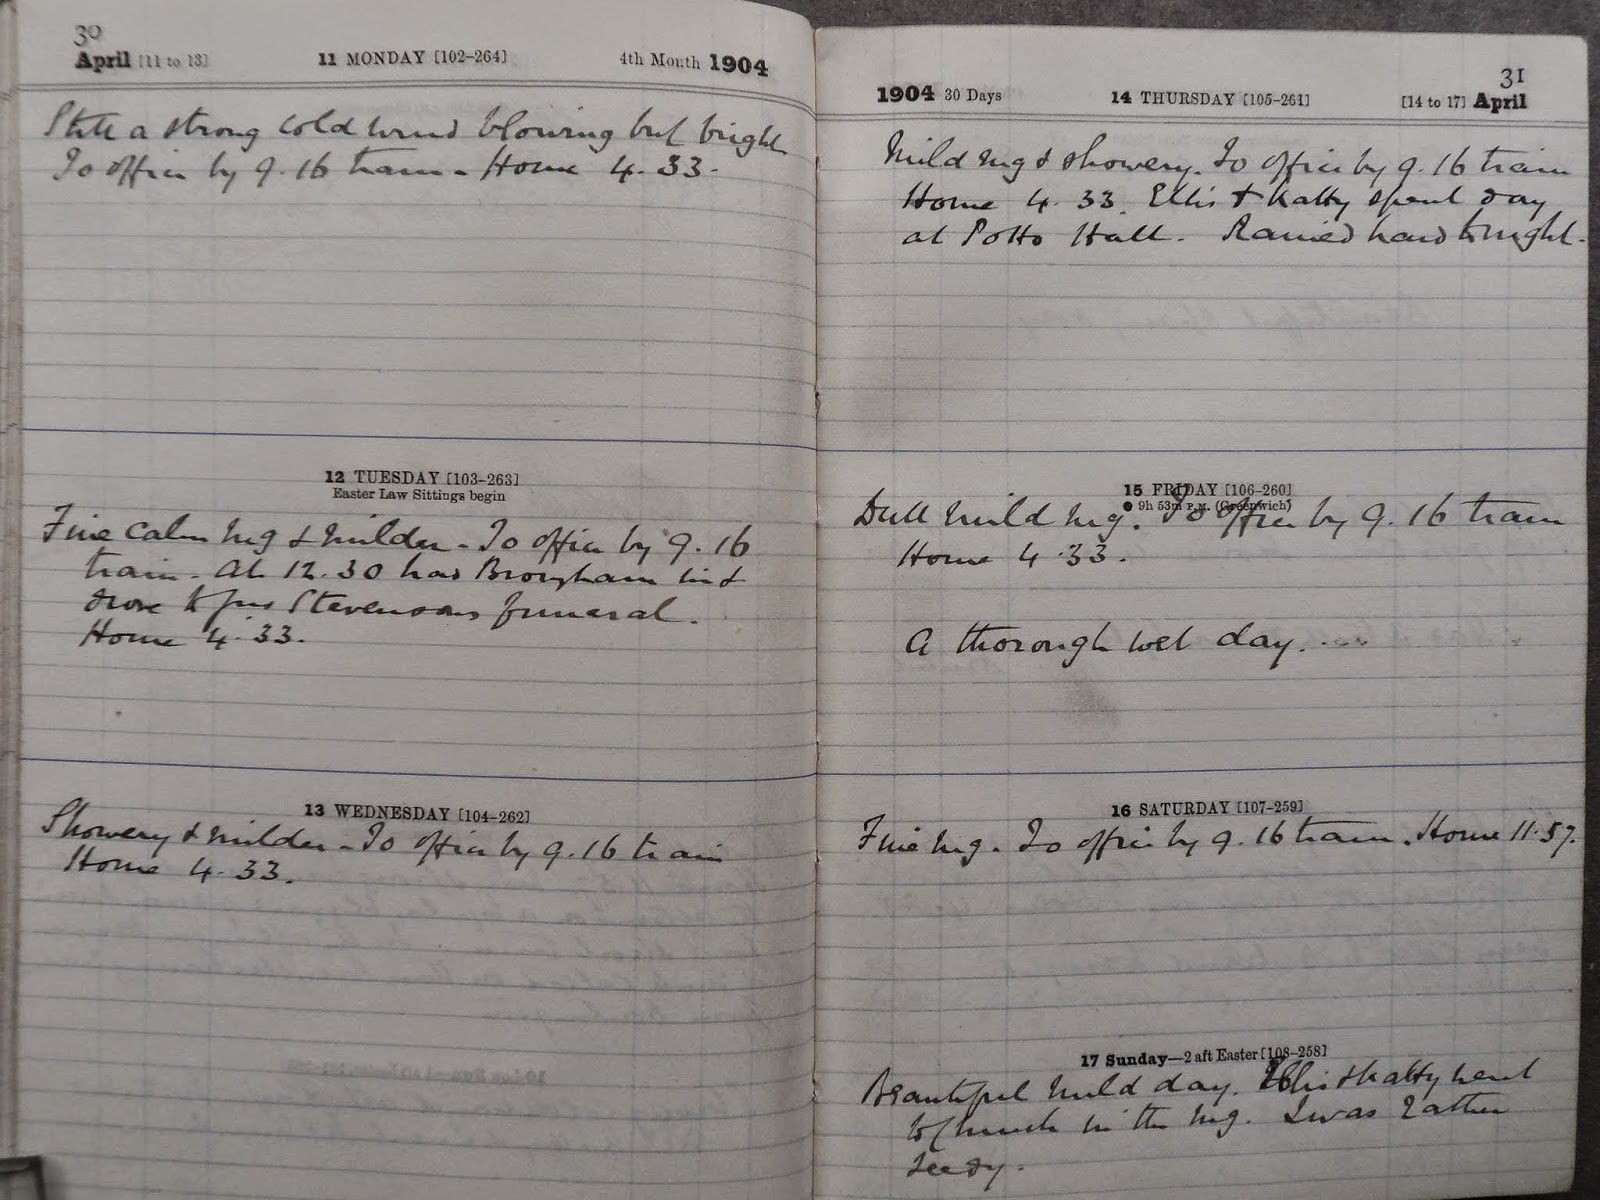 30
April [11 to 13] 11 MONDAY [102-264] 4th Month 1904
Still a strong cold wind blowing but bright
To office by 9.16 train - Home 4.33.
12 TUESDAY [103-263]
Easter Law Sittings begin
Fine calm mg & milder - To office by 9.16
train - At 12.30 had Brougham and
drove to Stevensons funeral.
Home 4.33.
13 WEDNESDAY [104-262]
Showery & milder - To office by 9.16 train
Home 4.33.
31
1904 30 Days 14 THURSDAY [105-261] [14 to 17] April
Mild mg & showery. To office by 9.16 train
Home 4.33. Ellis & Katty spent day
at Potto Hall. Rained hard tonight.
15 FRIDAY [106-260]
● 9h 53m P.M. (Greenwich)
Dull mild mg. To office by 9.16 train
Home 4.33.
A thorough wet day.
16 SATURDAY [107-259]
Fine mg. To office by 9.16 train. Home 11.57.
17 Sunday—2 aft Easter [108-258]
Beautiful mild day. Ellis & Katty went
to Church in the mg. I was rather
seedy.